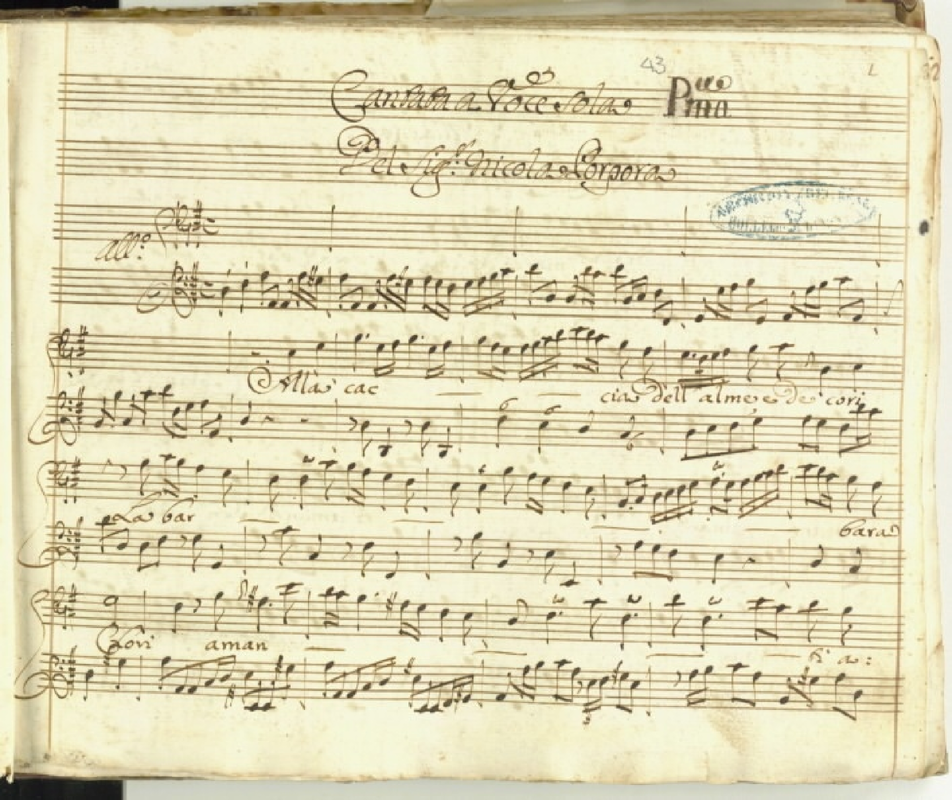 43 1
Cantata a Voce sola Pma
Del Sigr. Nicola Porpora
all.º
Alla cac cia dell alme e de cori
La bar bara
Clori aman ti a: